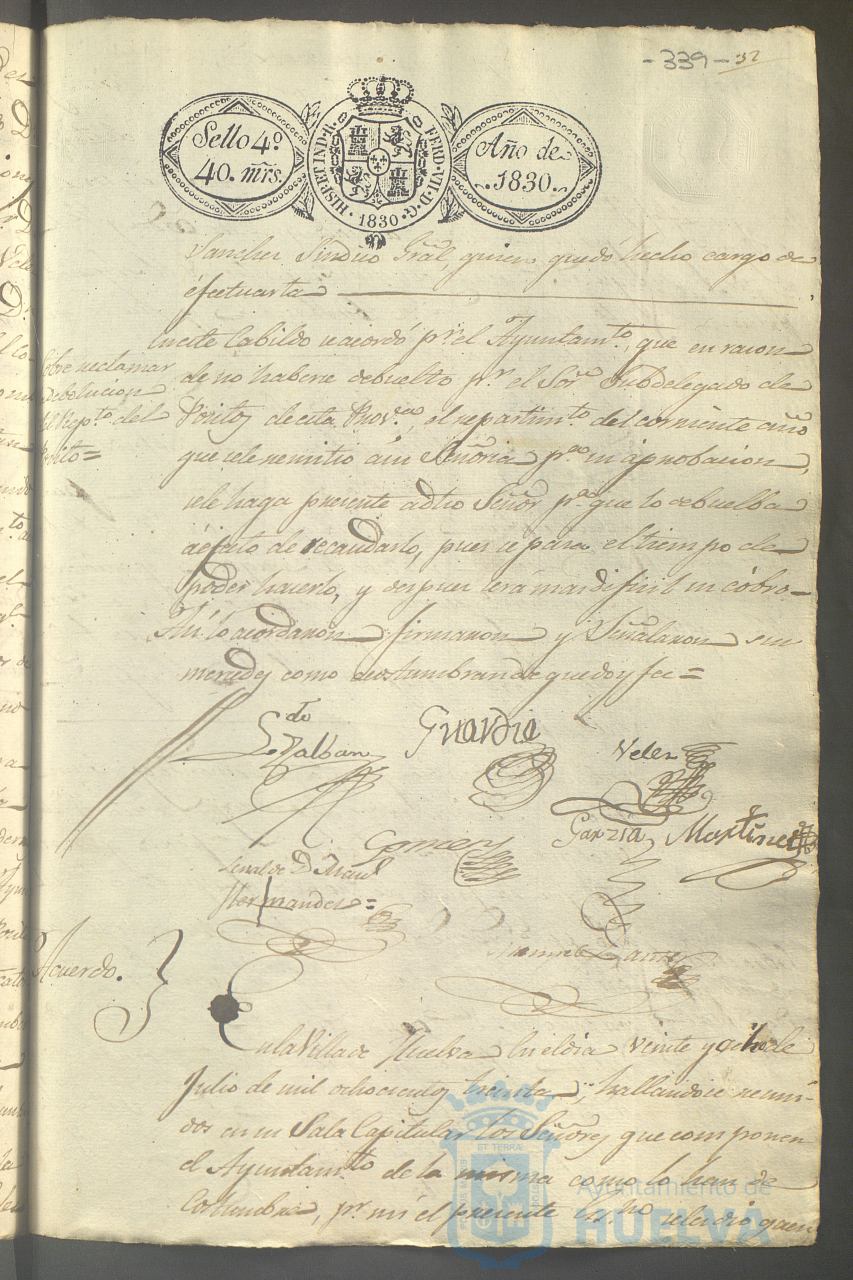 -339- 32
Sello 4º
40. mrs.
HISP. ET IND. R. FERD. VII. D. G. 1830
Año de
1830.
Sanchez Sindico Gral, quien quedó hecho cargo de
efectuarla
En este Cabildo se acordó pr. el Ayuntamto, que en razon
Sobre reclamar
de no haberse debuelto pr. el Sor. Subdelegado de
debolucion
Positos de esta Prova, el repartimto del corriente año
del Repto del
que se le remitió á su Señoria pa su aprobacion,
Posito=
se le haga presente adho Señor pa que lo debuelba
á efecto de recaudarlo, pues se pasa el tiempo de
poder hacerlo, y despues será mas dificil su cobro
Asi lo acordaron firmaron y Señalaron sus
mercedes como acostumbran de que doy fee=
Ldo Dalban
Guardia
Velez
Garzia
Martinez
Gomez
Señal de D. Man.l
Hernandez=
Acuerdo.
En la Villa de Huelva en el dia veinte y ocho de
Julio de mil ochocientos treinta, hallandose reuni-
dos en su Sala Capitular los Señores que componen
el Ayuntamto de la misma como lo han de
costumbre, pr. mi el presente Essno se les dió quen
Ayuntamiento de
HUELVA